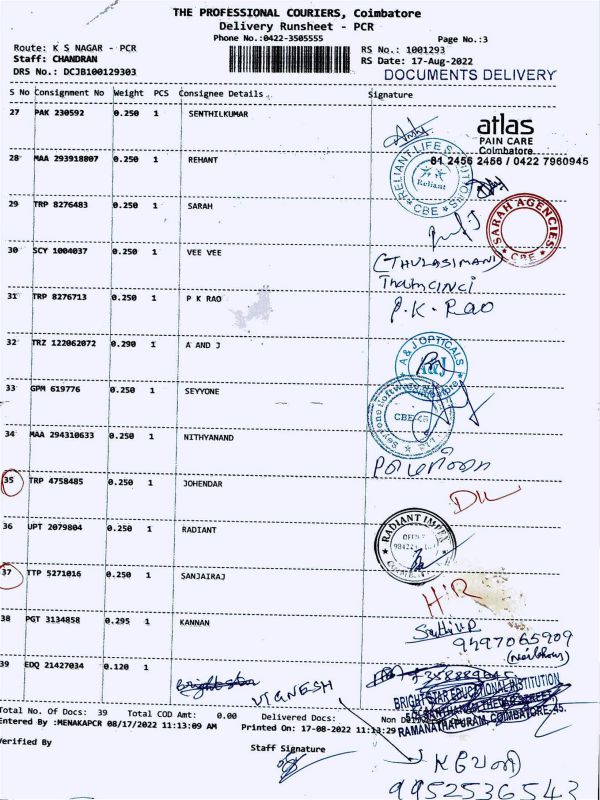 THE PROFESSIONAL COURIERS, Coimbatore
Delivery Runsheet - PCR
Phone No.:0422-3505555
Page No.:3
Route: K S NAGAR - PCR
RS No.: 1001293
Staff: CHANDRAN
RS Date: 17-Aug-2022
DRS No.: DCJB100129303
DOCUMENTS DELIVERY
S No Consignment No Weight PCS Consignee Details Signature
27 PAK 230592 0.250 1 SENTHILKUMAR
atlas
PAIN CARE
Coimbatore
81 2456 2456 / 0422 7960945
28 MAA 293918807 0.250 1 REHANT
Reliant
CBE
29 TRP 8276483 0.250 1 SARAH
SARAH AGENCIES
CBE
30 SCY 1004037 0.250 1 VEE VEE
(THULASIMANI)
31 TRP 8276713 0.250 1 P K RAO
P.K. Rao
32 TRZ 122062072 0.290 1 A AND J
A & J OPTICALS
33 GPM 619776 0.250 1 SEYYONE
34 MAA 294310633 0.250 1 NITHYANAND
35 TRP 4758485 0.250 1 JOHENDAR
36 UPT 2079804 0.250 1 RADIANT
RADIANT IMPEX
37 TTP 5271016 0.250 1 SANJAIRAJ
38 PGT 3134858 0.295 1 KANNAN
9497065909
39 EDQ 21427034 0.120 1
VIGNESH
BRIGHT STAR EDUCATIONAL INSTITUTION
RAMANATHAPURAM, COIMBATORE-45.
Total No. Of Docs: 39 Total COD Amt: 0.00 Delivered Docs:
Entered By :MENAKAPCR 08/17/2022 11:13:09 AM Printed On: 17-08-2022 11:13:29
Verified By
Staff Signature
9952536543